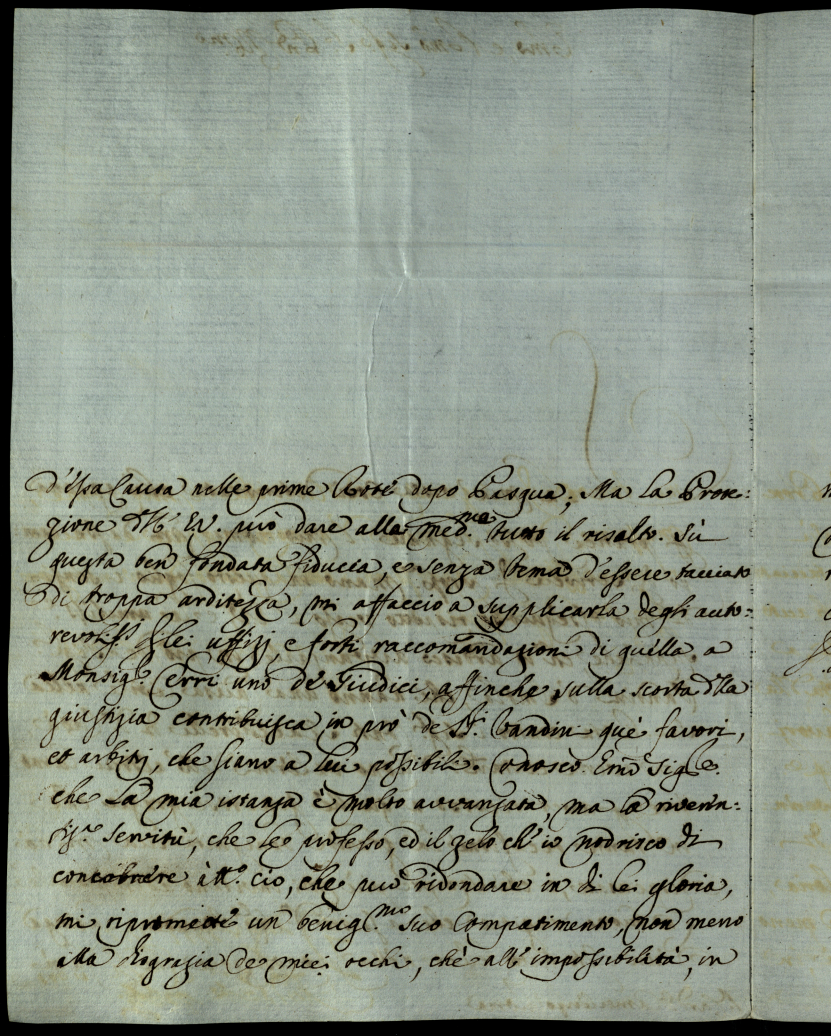 d'essa Causa nelle prime Rote dopo Pasqua; Ma La Prote:
zione dll' EV. può dare alla med.ma tutto il risalto. Sù
questa ben fondata fiducia, e senza tema d'essere tacciato
di troppa arditezza, mi affaccio a supplicarla degli auto:
revoliss.i di lei uffizj, e forti raccomandazioni di quella a
Monsig.e Erri uno de' Giudici, affinche sulla scorta dlla
giustizia contribuisca in prò de SS.ri Bandini que' favori,
et arbitrj, che siano a lui possibili. Conosco Em̃o Sig.re
che La mia istanza è molto avvanzata, ma la riveren:
servitù, che le professo, ed il zelo ch' io nodrisco di
concorrere à tt.o ciò, che può ridondare in di lei gloria,
mi ripromette un benig.mo suo Compatimento, non meno
alla disgrazia de miei occhi, che all' impossibilità, in